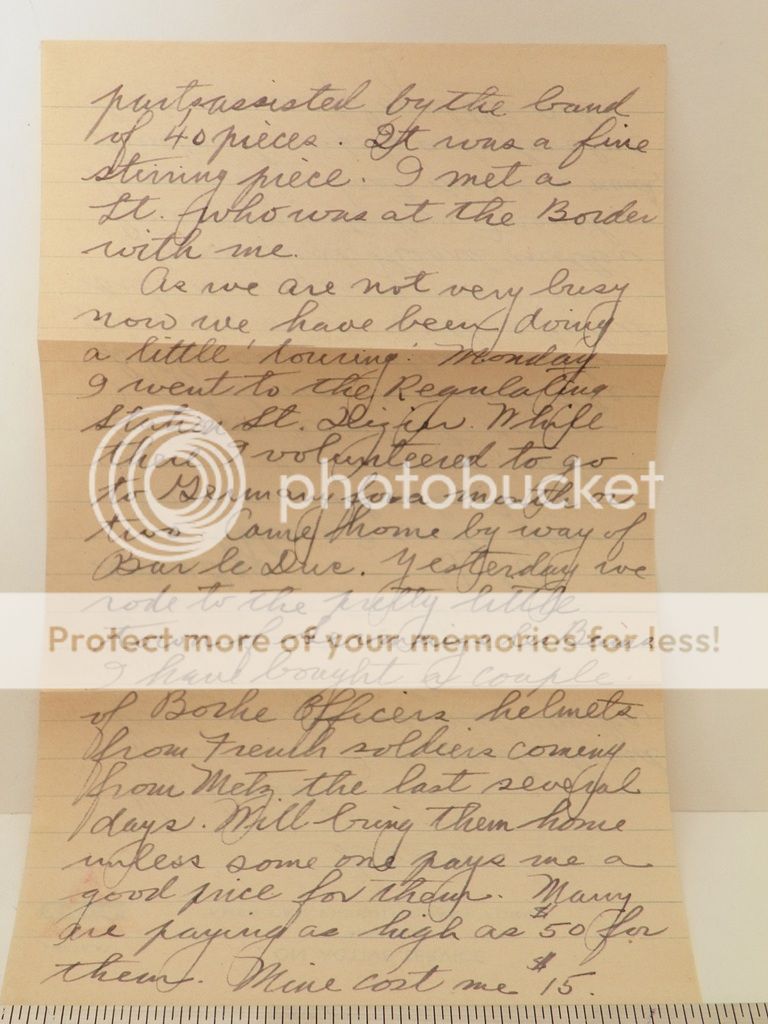 parts assisted by the band
of 40 pieces. It was a fine
stirring piece. I met a
Lt. who was at the Border
with me.
As we are not very busy
now we have been doing
a little 'touring'. Monday
I went to the Regulating
Station St. Dizier. While
there I volunteered to go
photobucket
to Germany for a month or
two. Came home by way of
Bar le Duc. Yesterday we
rode to the pretty little
Protect more of your memories for less!
town of les Bains
I have bought a couple
of Boche Officers helmets
from French soldiers coming
from Metz the last several
days. Will bring them home
unless some one pays me a
good price for them. Many
are paying as high as $50 for
them. Mine cost me $15.